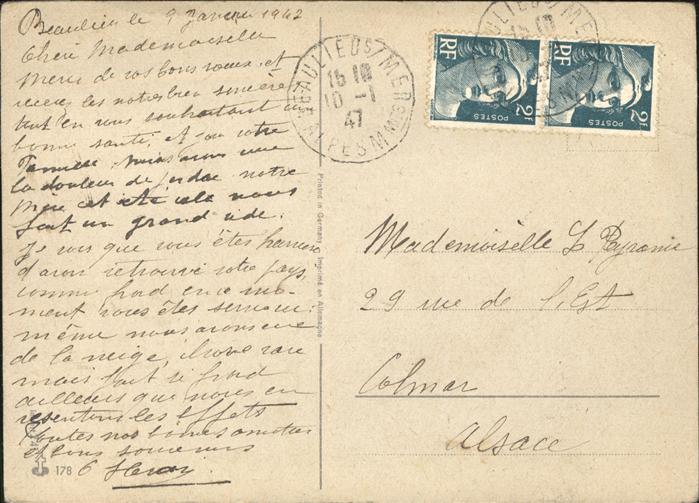 Beaulieu le 9 Janvier 1947
Chère Mademoiselle
Merci de vos bons voeux et
recevez les notres bien sincères
tout en vous souhaitant une
bonne santé, et pour votre
famille. Nous avons une
la douleur de perdre notre
Mère et cela nous
fait un grand vide.
Je vois que vous êtes heureuse
d'avoir retrouvé votre pays,
comme froid en ce mo-
ment vous êtes servi
même nous avons eu
de la neige, chose rare
mais fait si froid
ailleurs que nous en
resentons les effets
Toutes nos bonnes amitiés
et bons souvenirs
178
6
BEAULIEU S/MER
16 H
10 -1
47
ALPES MMES
BEAULIEU S/MER
RF
POSTES
2F
RF
POSTES
2F
Printed in Germany - Imprimé en Allemagne
Mademoiselle L
29 rue de l'Est
Colmar
Alsace